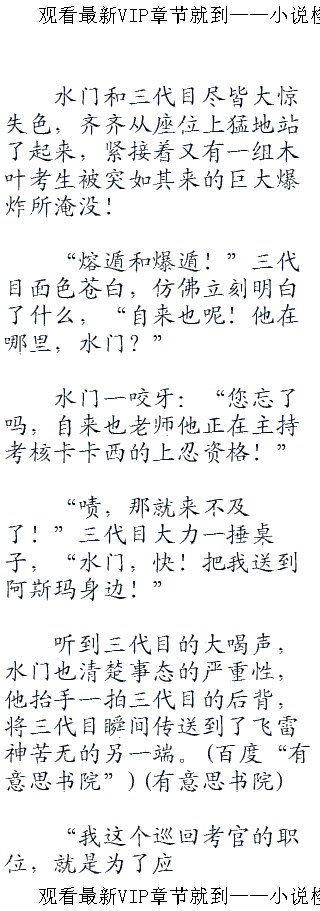 观看最新VIP章节就到——小说
水门和三代目尽皆大惊
失色，齐齐从座位上猛地站
了起来，紧接着又有一组木
叶考生被突如其来的巨大爆
炸所淹没！
“熔遁和爆遁！”三代
目面色苍白，仿佛立刻明白
了什么，“自来也呢！他在
哪里，水门？”
水门一咬牙：“您忘了
吗，自来也老师他正在主持
考核卡卡西的上忍资格！”
“啧，那就来不及
了！”三代目大力一捶桌
子，“水门，快！把我送到
阿斯玛身边！”
听到三代目的大喝声，
水门也清楚事态的严重性，
他抬手一拍三代目的后背，
将三代目瞬间传送到了飞雷
神苦无的另一端。(百度“有
意思书院”)(有意思书院)
“我这个巡回考官的职
位，就是为了应
观看最新VIP章节就到——小说